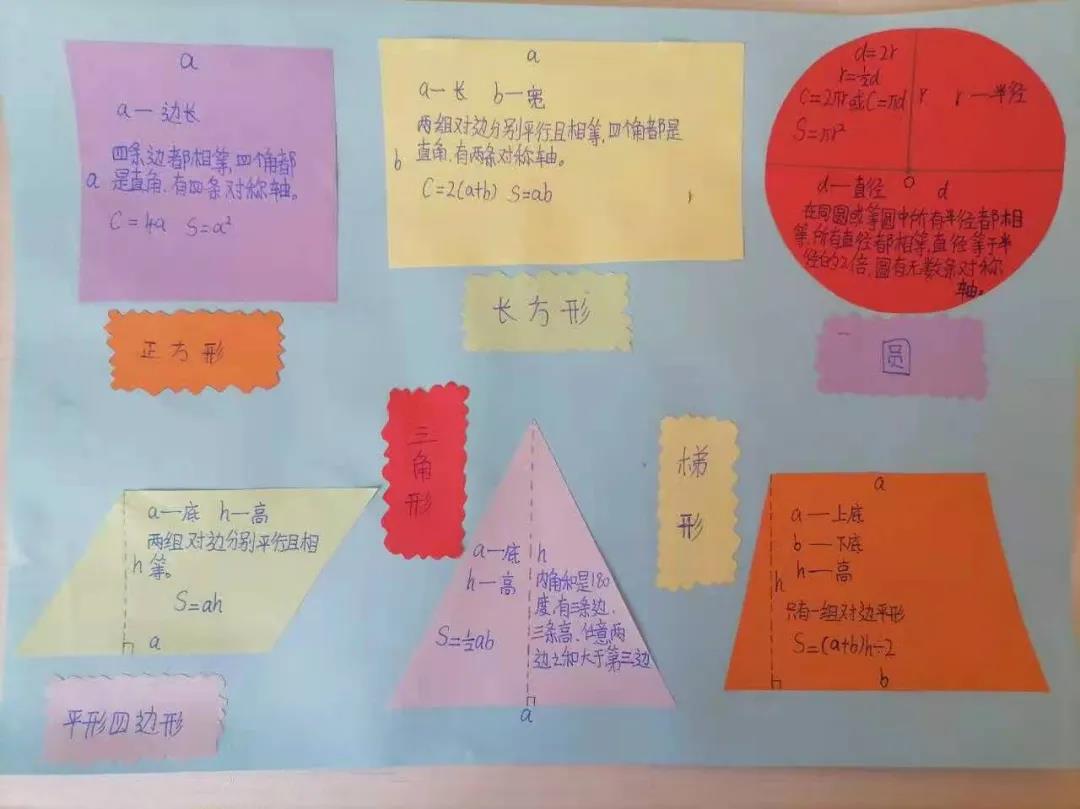 a
a一边长
四条边都相等,四个角都
a
是直角.有四条对称轴。
C=4a S=a²
正方形
a
a一长 b一宽
两组对边分别平行且相等,四个角都是
b
直角.有两条对称轴。
C=2(a+b) S=ab
长方形
d=2r
r=½d
C=2πr或C=πd
r
r一半径
S=πr²
d一直径
o
d
在同圆或等圆中所有半径都相
等,所有直径都相等,直径等于半
径的2倍,圆有无数条对称
轴。
圆
a一底 h一高
两组对边分别平行且相
h
等。
S=ah
a
平形四边形
三角形
a一底
h
h一高
内角和是180
度,有三条边.
三条高.任意两
边之和大于第三边
S=½ab
a
梯形
a
a一上底
b一下底
h一高
h
只有一组对边平形
S=(a+b)h÷2
b